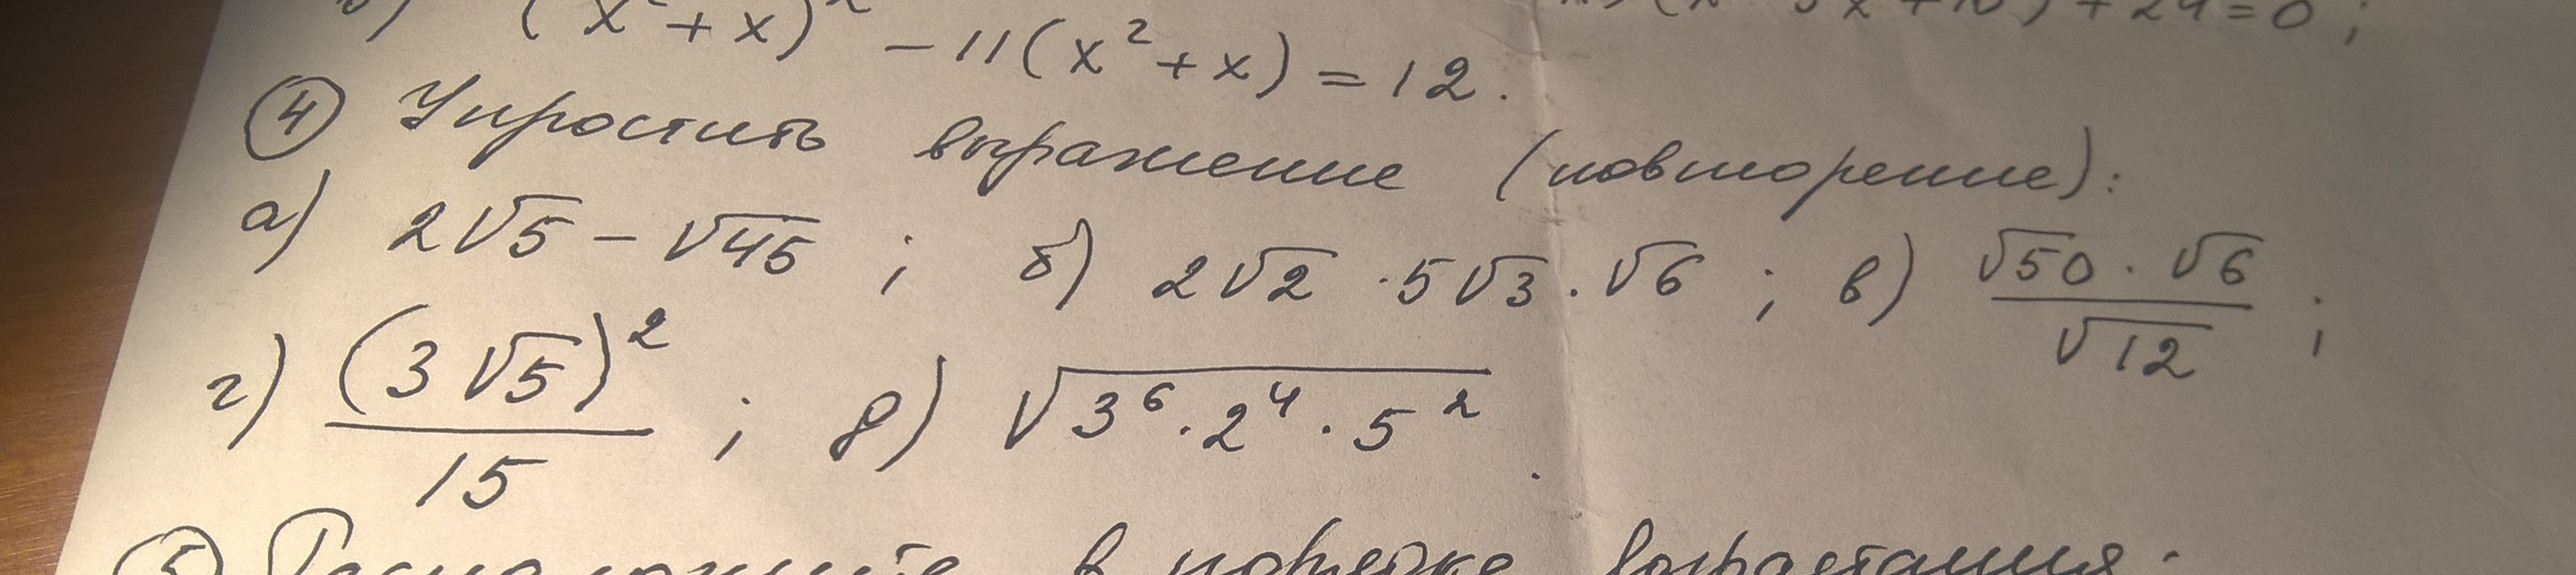 (x² + x)² − 11(x² + x) = 12.
+ 24 = 0;
④ Упростить выражение (повторение):
а) 2√5 − √45 ; б) 2√2 · 5√3 · √6 ; в) (√50 · √6)/√12 ;
г) (3√5)²/15 ; д) √(3⁶ · 2⁴ · 5²).
⑤ в порядке возрастания: